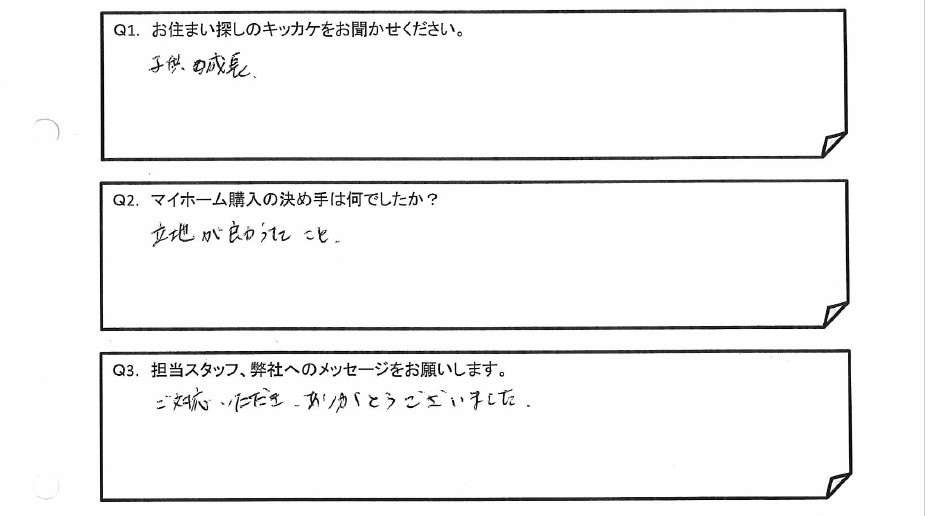 Q1. お住まい探しのキッカケをお聞かせください。
子供の成長.
Q2. マイホーム購入の決め手は何でしたか？
立地が良かったこと.
Q3. 担当スタッフ、弊社へのメッセージをお願いします。
ご対応いただき、ありがとうございました.